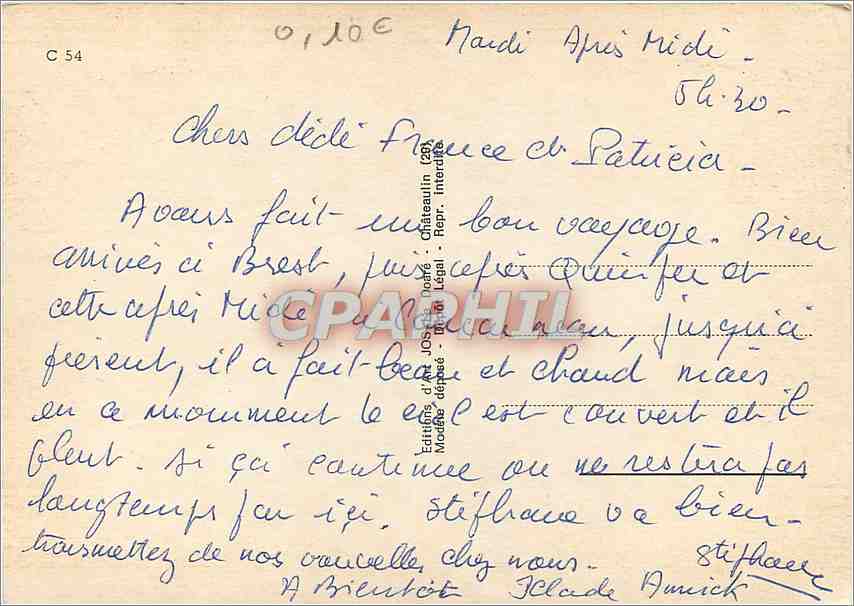 0,10€
C 54
Mardi Après Midi -
5h.30 -
Chers dédé France et Patricia -
Avons fait un bon voyage. Bien
arrivés à Brest, puis après Quimper et
cette après Midi Concarneau, jusqu'à
présent, il a fait beau et chaud mais
en ce momment le ciel est couvert et il
pleut. si ça continue on ne restera pas
longtemps par içi. Stéphane va bien -
transmettez de nos nouvelles chez nous. Stéphane
A Bientôt Annick
Editions d'Art JOS Doaré - Châteaulin (29)
Modèle déposé - Dépôt Légal - Repr. interdite
CPARPHIL